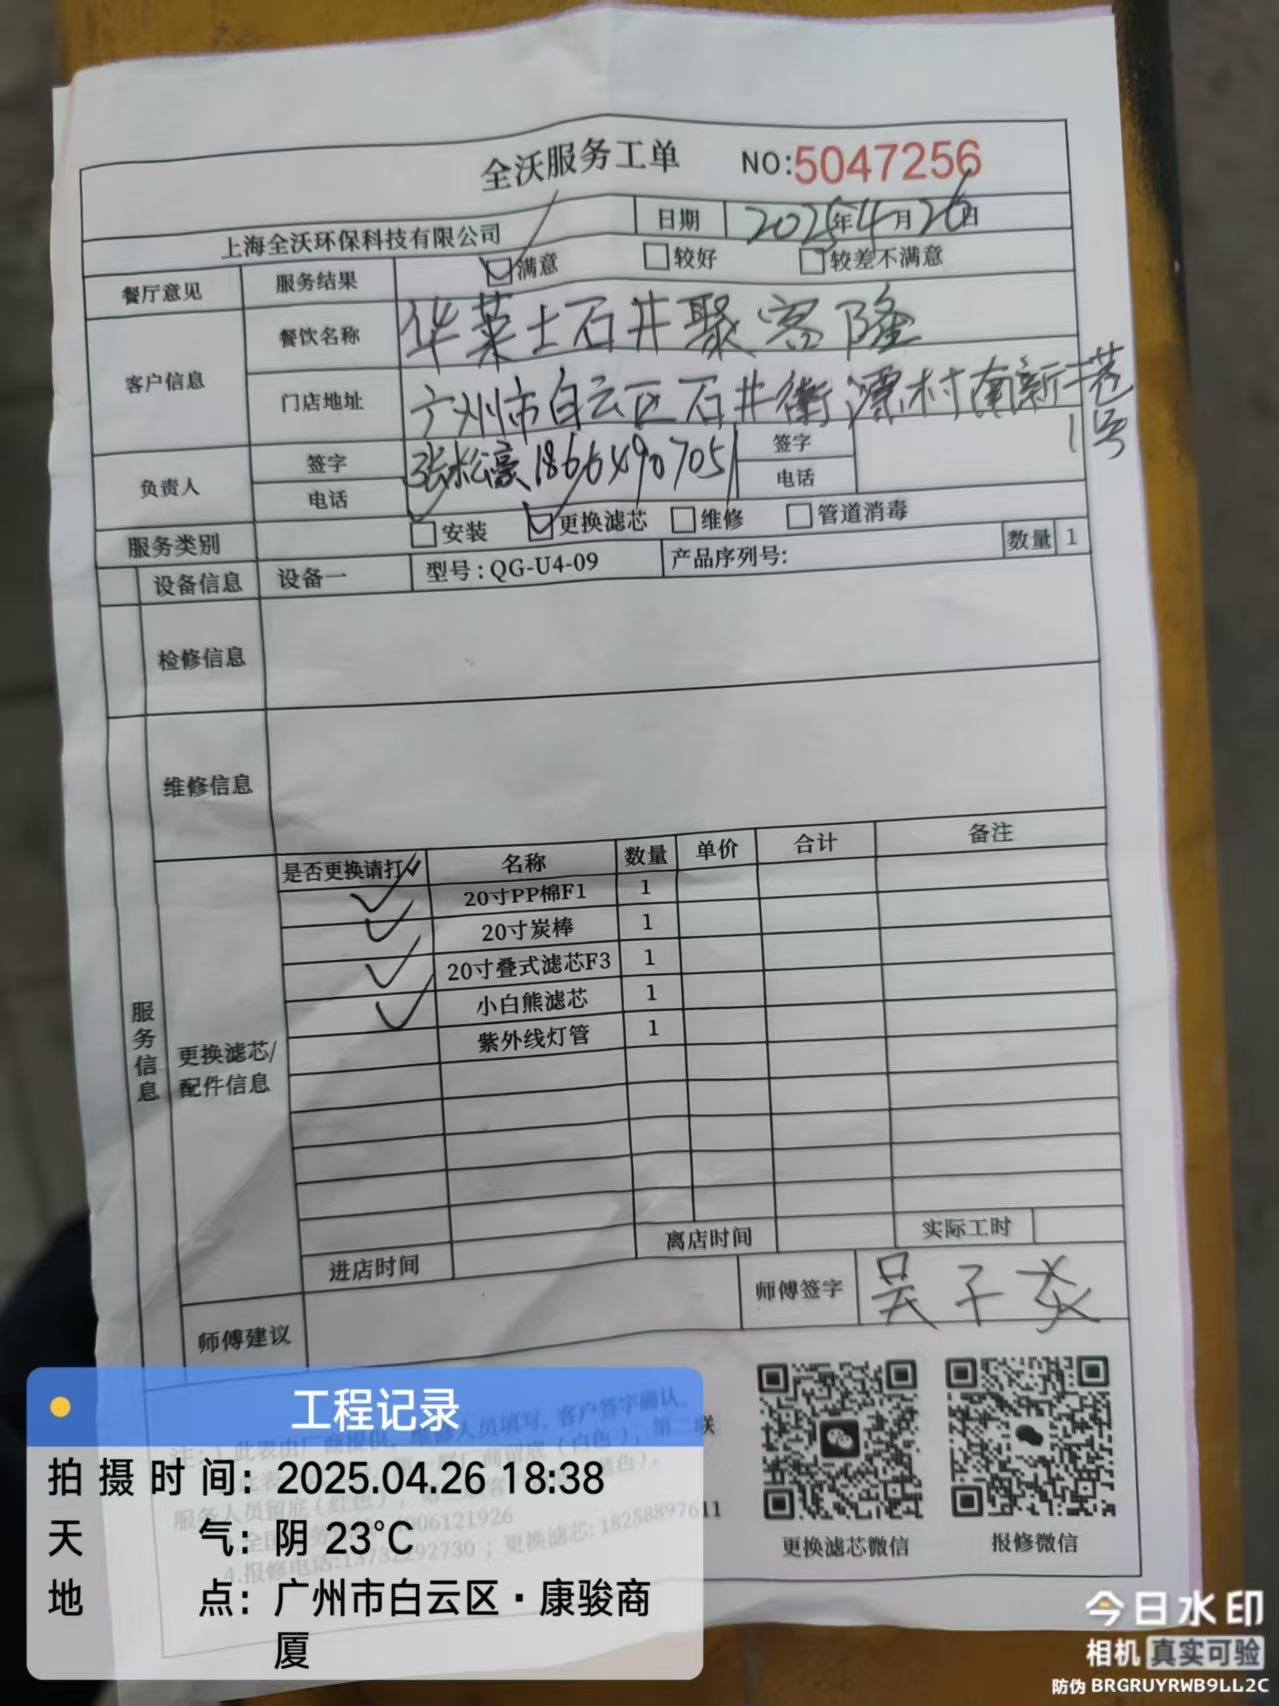 全沃服务工单 NO:5047256
上海全沃环保科技有限公司 日期 2025年4月26日
餐厅意见 服务结果 满意 较好 较差不满意
客户信息 餐饮名称 华莱士石井聚客隆
门店地址 广州市白云区石井街潭村南新十巷
1号
负责人 签字 张松豪 18664890705 签字
电话 电话
服务类别 安装 更换滤芯 维修 管道消毒
设备信息 设备一 型号:QG-U4-09 产品序列号: 数量 1
检修信息
维修信息
服务信息
更换滤芯/
配件信息
是否更换请打✓ 名称 数量 单价 合计 备注
✓ 20寸PP棉F1 1
✓ 20寸炭棒 1
✓ 20寸叠式滤芯F3 1
✓ 小白熊滤芯 1
紫外线灯管 1
进店时间 离店时间 实际工时
师傅建议 师傅签字 吴子炎
注:1.此表由厂商提供,维修人员填写,客户签字确认。
更换滤芯微信 报修微信
工程记录
拍摄时间: 2025.04.26 18:38
天气: 阴 23°C
地点: 广州市白云区·康骏商
厦
今日水印
相机 真实可验
防伪 BRGRUYRWB9LL2C